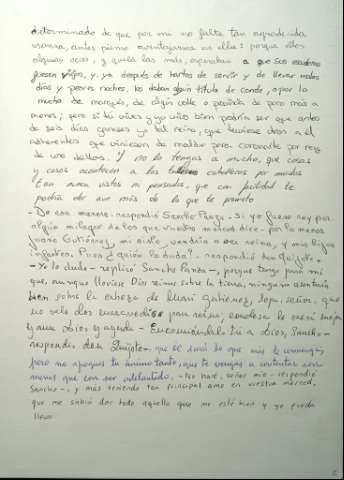 determinado de que por mí no falte tan agradecida
usanza, antes pienso aventajarme en ella: porque ellos
algunas veces, y quizá las más, esperaban a que sus escuderos
fuesen viejos, y, ya después de hartos de servir y de llevar malos
días y peores noches, les daban algún título de conde, o por lo
mucho de marqués, de algún valle o provincia de poco más a
menos; pero si tú vives y yo vivo bien podría ser que antes
de seis días ganase yo tal reino, que tuviese otros a él
adherentes que viniesen de molde para coronarte por rey
de uno dellos. Y no lo tengas a mucho, que cosas
y casos acontecen a los tales caballeros por modos
tan nunca vistos ni pensados, que con facilidad te
podría dar aun más de lo que te prometo
- De esa manera - respondió Sancho Panza -, si yo fuese rey por
algún milagro de los que vuestra merced dice - por lo menos
Juana Gutiérrez, mi oíslo, vendría a ser reina, y mis hijos
infantes. Pues ¿quién lo duda? - respondió don Quijote.
- Yo lo dudo - replicó Sancho Panza -, porque tengo para mí
que, aunque lloviese Dios reinos sobre la tierra, ninguno asentaría
bien sobre la cabeza de Mari Gutiérrez, Sepa, señor, que
no vale dos maravedís para reina; condesa le caerá mejor
y aun Dios y ayuda - Encomiéndalo tú a Dios, Sancho -
respondió don Quijote -, que él dará lo que más le convenga;
pero no apoques tu ánimo tanto, que te vengas a contentar con
menos que con ser adelantado. - No haré, señor mío - respondió
Sancho -, y más teniendo tan principal amo en vuestra merced,
que me sabrá dar todo aquello que me esté bien y yo pueda
llevar.